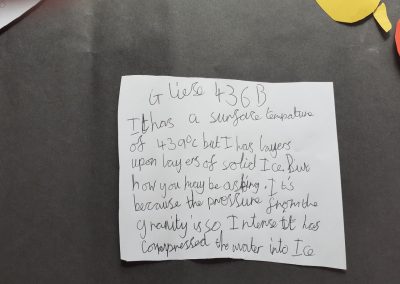 Gliese 436B
It has a surfase tempature
of 439°c but I has layers
upon layers of solid Ice. But
how you may be asking. It's
because the pressure from the
granity is so Intense it has
compressed the water into Ice